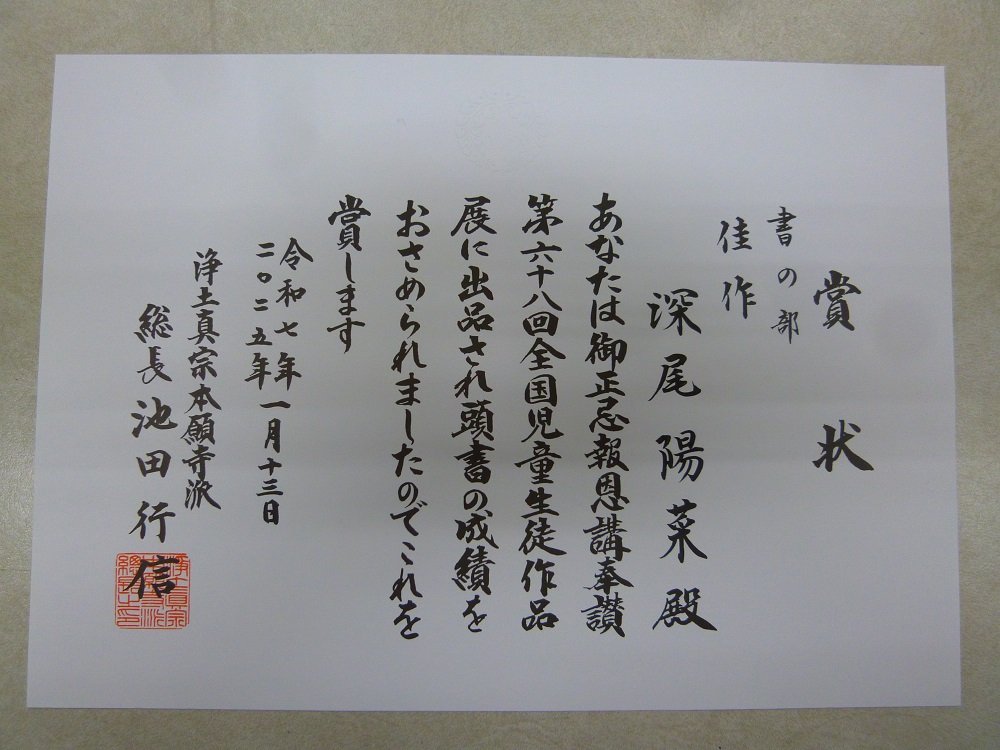 賞状
書の部
佳作
深尾陽菜殿
あなたは御正忌報恩講奉讃
第六十八回全国児童生徒作品
展に出品され頭書の成績を
おさめられましたのでこれを
賞します
令和七年
二〇二五年一月十三日
浄土真宗本願寺派
総長池田行信